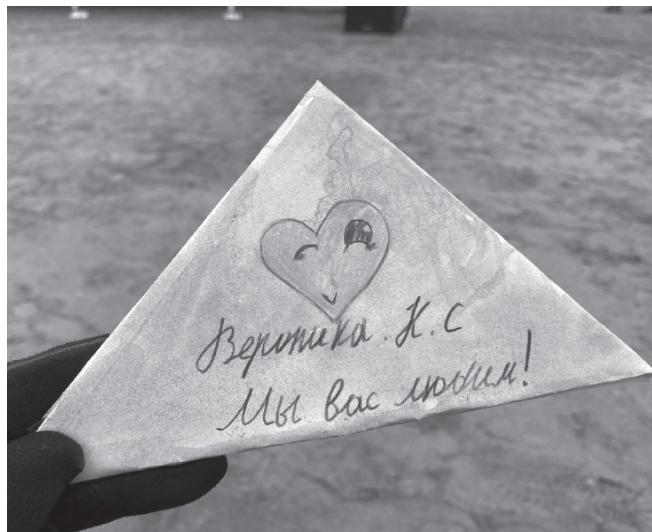 Вероника. К.С
Мы вас любим!